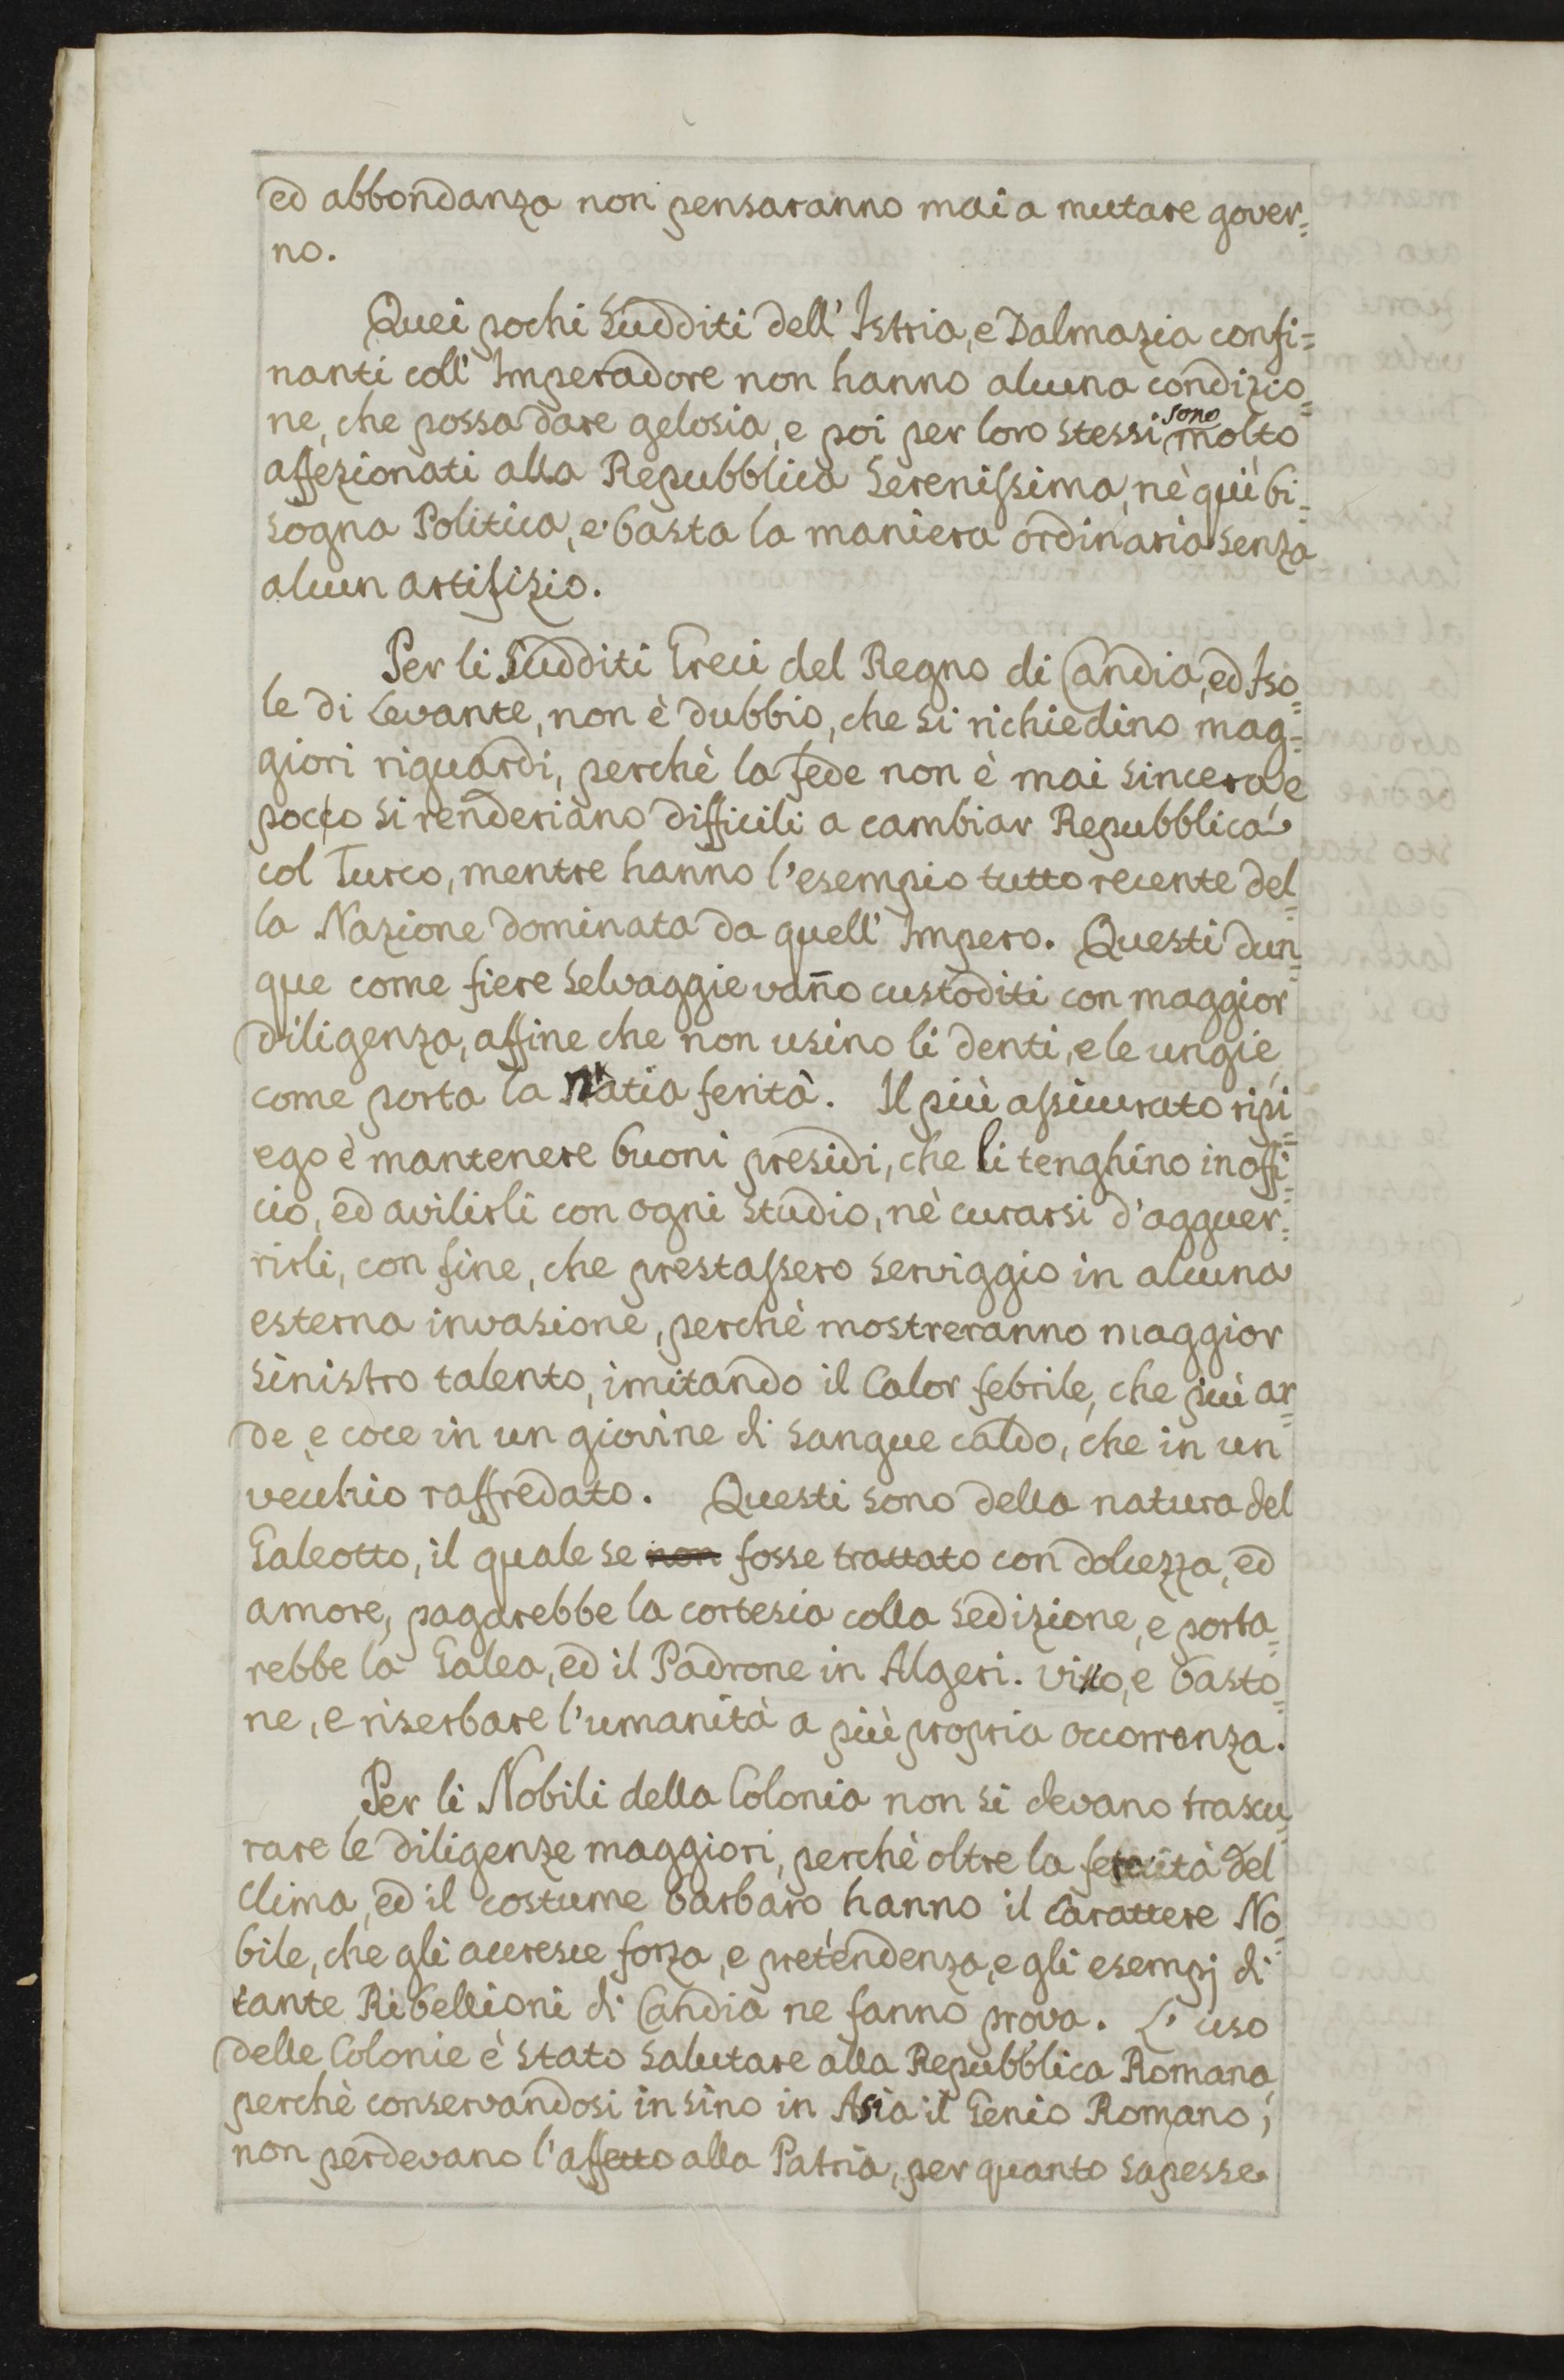 ed abbondanza non pensaranno mai a mutare gover=
no.
Quei pochi Sudditi dell' Istria, e Dalmazia confi=
nanti coll' Imperadore non hanno alcuna condizio=
ne, che possa dare gelosia, e poi per loro stessi sono molto
affezionati alla Repubblica Serenissima, nè qui bi=
sogna Politica, e basta la maniera ordinaria senza
alcun artifizio.
Per li Sudditi Greci del Regno di Candia, ed Iso=
le di Levante, non è dubbio, che si richiedino mag=
giori riguardi, perchè la fede non è mai sincera e
poco si renderiano difficili a cambiar Repubblica
col Turco, mentre hanno l'esempio tutto recente del=
la Nazione dominata da quell' Impero. Questi dun=
que come fiere selvaggie vañno custoditi con maggior
diligenza, affine che non usino li denti, e le ungie,
come porta la natia ferità. Il più assicurato ripi=
ego è mantenere buoni presidi, che li tenghino in offi=
cio, ed avilirli con ogni studio, nè curarsi d'agguer=
rirli, con fine, che prestassero serviggio in alcuna
esterna invasione, perchè mostreranno maggior
sinistro talento, imitando il Calor febrile, che più ar=
de, e coce in un giovine di sangue caldo, che in un
vecchio raffredato. Questi sono della natura del
Galeotto, il quale se non fosse trattato con dolcezza, ed
amore, pagarebbe la cortesia colla sedizione, e porta=
rebbe la Galea, ed il Padrone in Algeri. Vitto, e basto=
ne, e riserbare l'umanità a più propria occorrenza.
Per li Nobili della Colonia non si devano trascu=
rare le diligenze maggiori, perchè oltre la ferocità del
Clima, ed il costume barbaro hanno il Carattere No=
bile, che gli accresce forza, e pretendenza, e gli esempj di
tante Ribellioni di Candia ne fanno prova. L' uso
delle Colonie è stato salutare alla Repubblica Romana,
perchè conservandosi in sino in Asia il Genio Romano,
non perdevano l'affetto alla Patria, per quanto sapesse